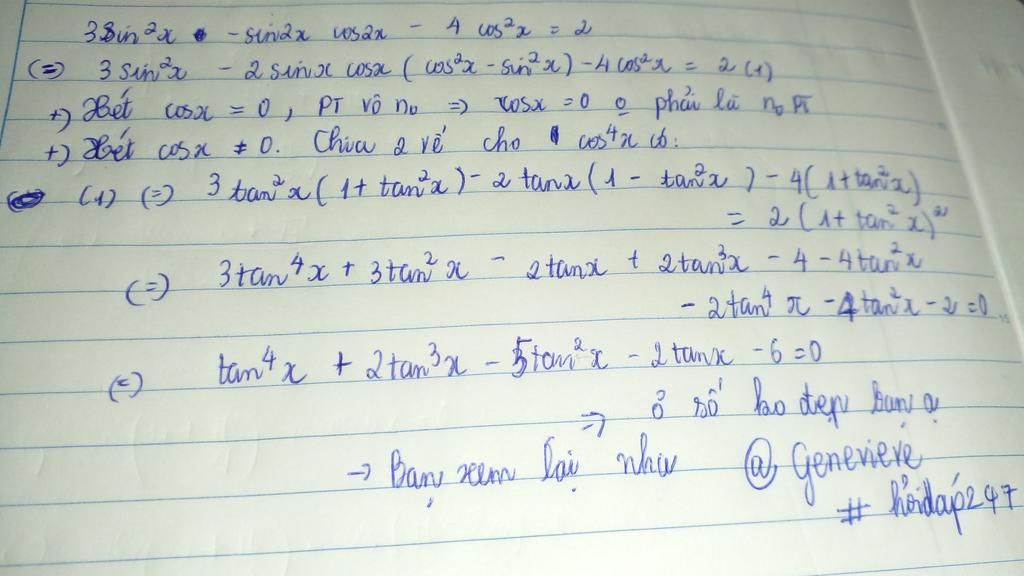 3sin²x - sin2x cos2x - 4 cos²x = 2
(=) 3 sin²x - 2 sinx cosx ( cos²x - sin²x) - 4cos²x = 2 (1)
+) Xét cosx = 0, PT vô no => cosx = 0 o phải là no PT
+) Xét cosx ≠ 0. Chia 2 vế cho cos⁴x có:
(1) (=) 3 tan²x (1 + tan²x) - 2 tanx (1 - tan²x) - 4(1+tan²x)
= 2 (1+ tan²x)²
(=) 3tan⁴x + 3tan²x - 2tanx + 2tan³x - 4 - 4tan²x
- 2tan⁴x - 4tan²x - 2 = 0
(=) tan⁴x + 2tan³x - 5tan²x - 2tanx - 6 = 0
=> số ko đẹp bạn ạ
→ Bạn xem lại như @ Genevieve
# hỏiđáp247